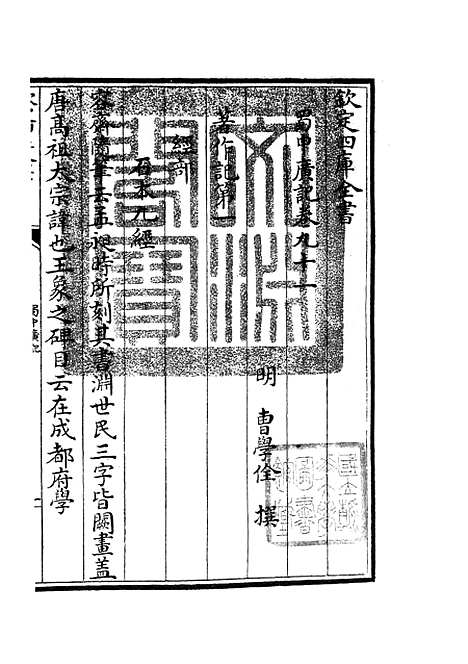 欽定四庫全書
蜀中廣記卷九十一
明 曹學佺 撰
著作記第一
經部
石本九經
容齋隨筆云孟昶時所刻其書淵世民三字皆闕畫蓋
唐高祖太宗諱也王象之碑目云在成都府學
蜀中廣記
文淵閣寶